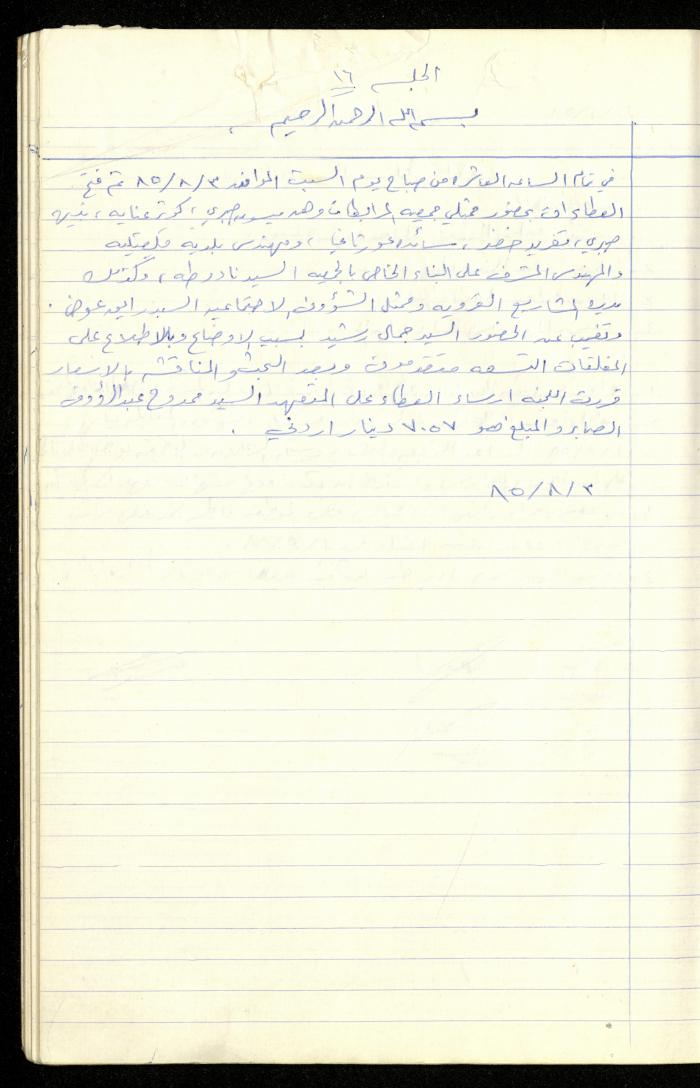 الجلسه ١٦
بسم الله الرحمن الرحيم .
في تمام الساعه العاشره من صباح يوم السبت الموافق ٨٥/٨/٣ تم فتح
العطاءات بحضور ممثلي جمعيه المرابطات وهم ميسون صبري ، كوثر عنايه ،
صبري ، تغريد خضر ، سائده ، ومهندس بلدية قلقيليه
والمهندس المشرف على البناء الخاص بالجمعيه السيد نادر طه ، وكذلك
مديره المشاريع القرويه وممثل الشؤون الاجتماعيه السيد عوض .
وتغيب عن الحضور السيد جمال رشيد بسبب الاوضاع وبالاطلاع على
المغلفات التسعه متقدمون وبعد البحث والمناقشه بالاسعار
قررت اللجنه ارساء العطاء على المتعهد السيد ممدوح عبدالرؤوف
الصابر والمبلغ هو ٧٠٥٧ دينار اردني .
٨٥/٨/٣